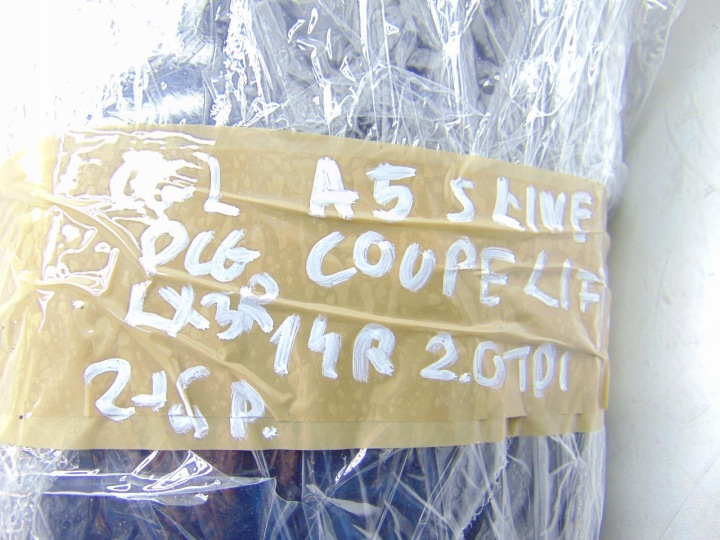 L A5 S LINE
DCG COUPE LIF
LX3R 14R 2.0TDI
2-5 P.